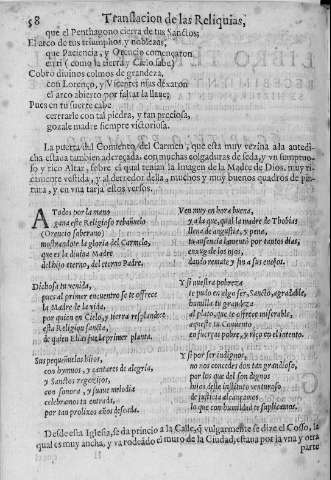 58 Translacion de las Reliquias,
que el Penthagono cierra de tus Sanctos;
El arco de tus triumphos y noblezas,
que Paciencia, y Orencio començaron
en ti (como la tierra y Cielo sabe)
Cobrò diuinos colmos de grandeza,
con Lorenço, y Vicente
el arco abierto por faltar la llaue;
Pues en tu fuerte cabe
cerrarle con tal piedra, y tan preciosa,
gozale madre siempre victoriosa.
La puerta del Conuento, del Carmen, que està muy vezina à la antedi-
cha estaua tambien adereçada, con muchas colgaduras de seda, y vn sumptuo-
so y rico Altar, sobre el qual tenian la Imagen de la Madre de Dios, muy ri-
camente vestida, y al derredor della, muchos y muy buenos quadros de pin-
tura, y en vna tarja estos versos.
A Todos por la mano
gana este Religioso rebañuelo
(Orencio soberano)
mostrandote la gloria del Carmelo,
que es la diuina Madre
del hijo eterno, del eterno Padre.
Dichosa tu venida,
pues al primer encuentro se te offrece
la Madre de la vida,
por quien en Cielo, y tierra resplandece
esta Religion sancta,
de quien Elias fue la primer planta.
Sus pequeñuelos hijos,
con hymnos, y cantares de alegria,
y Sanctos regozijos,
con sonora, y suaue melodia
celebramos tu entrada,
por tan prolixos años desseada.
Ven muy en hora buena,
y a la que, qual la madre de Thobias
llena de angustia, y pena,
tu ausencia lamentò por tantos dias,
enxuga los ojos,
dando remate y fin a sus enojos.
Y si nuestra pobreza
te puso en algo ser, Sancto, agradable,
humilla tu grandeza
al plato, que te offrece miserable,
aqueste tu Conuento
en fuerças pobre, y rico en el intento.
Y si por ser indignos,
no nos concedes don tan grandioso,
por los que del son dignos
hijos deste instituto venturoso
de justicia alcançamos
lo que con humildad te suplicamos.
Desde esta Iglesia, se da princio a la Calle, q̃ vulgarmente se dize el Cosso, la
qual es muy ancha, y va rodeãdo el muro de la Ciudad, estaua por ja vna y otra
parte